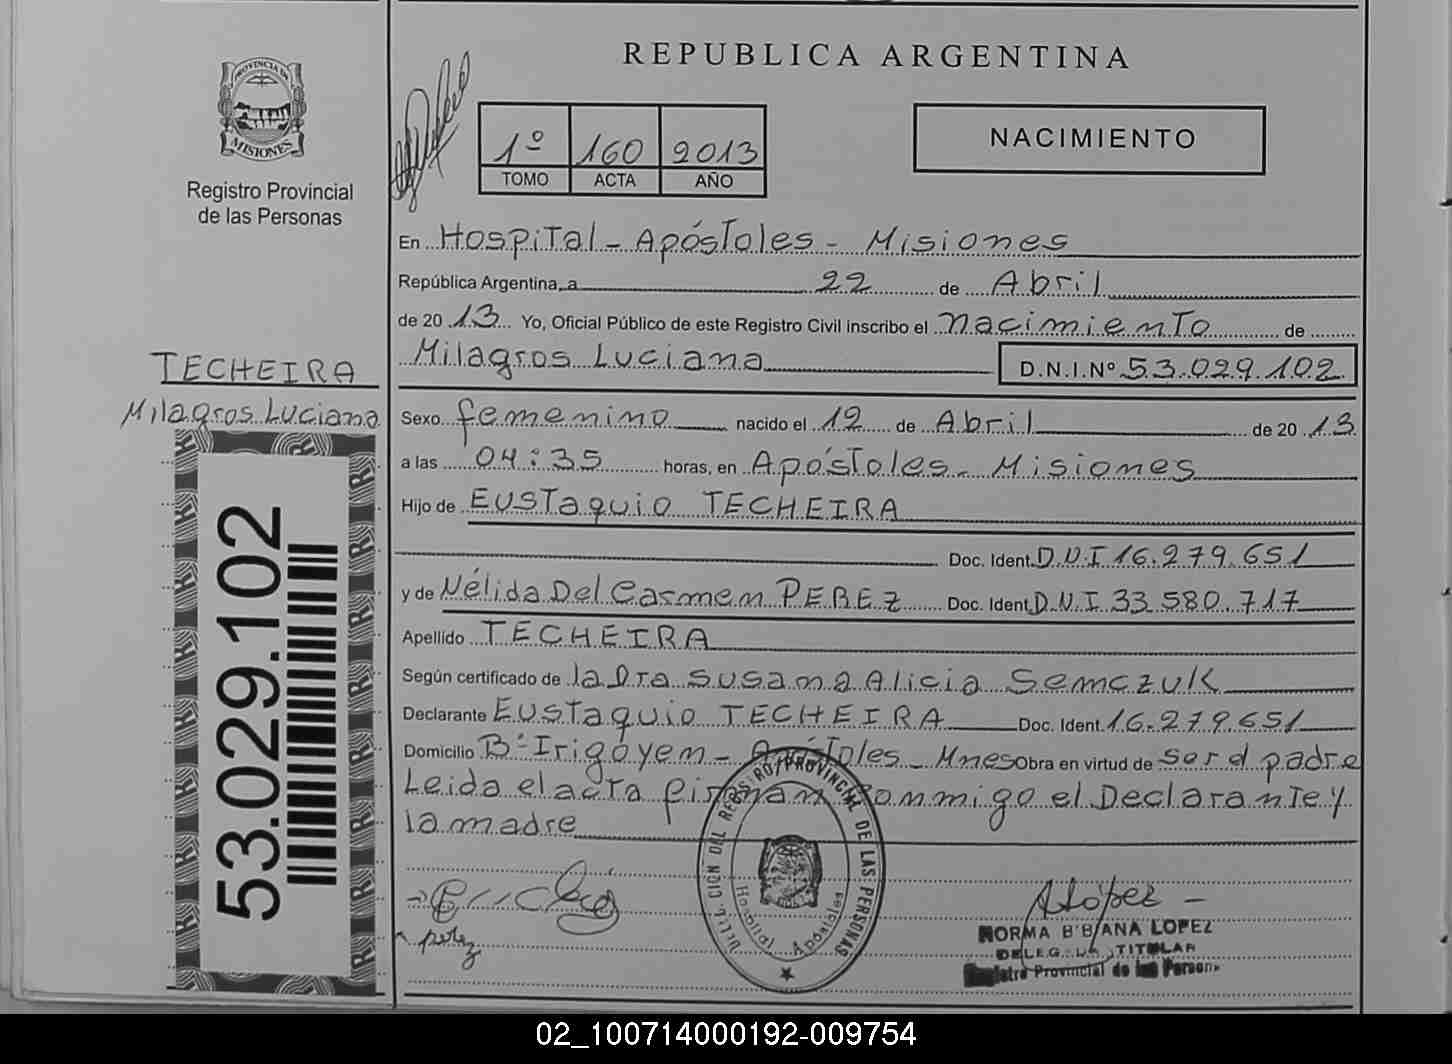 REPUBLICA ARGENTINA
PROVINCIA DE
MISIONES
Registro Provincial
de las Personas
1º 160 2013
TOMO ACTA AÑO
NACIMIENTO
En Hospital - Apóstoles - Misiones
República Argentina, a 22 de Abril
de 2013 Yo, Oficial Público de este Registro Civil inscribo el nacimiento de
Milagros Luciana D.N.I.Nº 53.029.102
TECHEIRA
Milagros Luciana
53.029.102
Sexo femenino nacido el 12 de Abril de 2013
a las 04:35 horas, en Apóstoles - Misiones
Hijo de Eustaquio TECHEIRA
Doc. Ident. D.N.I 16.279.651
y de Nélida Del Carmen PEREZ Doc. Ident D.N.I 33.580.717
Apellido TECHEIRA
Según certificado de la Dra Susana Alicia Semczuk
Declarante Eustaquio TECHEIRA Doc. Ident. 16.279.651
Domicilio Bº Irigoyen - Apóstoles - Mnes Obra en virtud de ser el padre
Leida el acta firman conmigo el Declarante y
la madre
REGISTRO PROVINCIAL DE LAS PERSONAS
Hospital Apóstoles
perez
ALópez
NORMA BIBIANA LOPEZ
DELEGADA TITULAR
Registro Provincial de las Personas
02_100714000192-009754